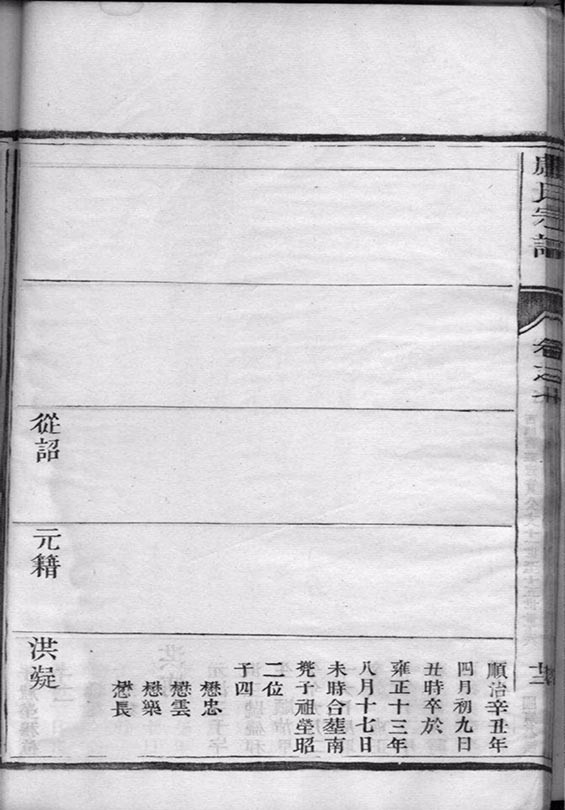 氏宗譜
卷之廿
順治辛丑年
四月初九日
丑時卒於
雍正十三年
八月十七日
未時合塟南
凳子祖塋昭
二位
子四
懋忠
懋雲
懋樂
懋長
從詔
元籍
洪